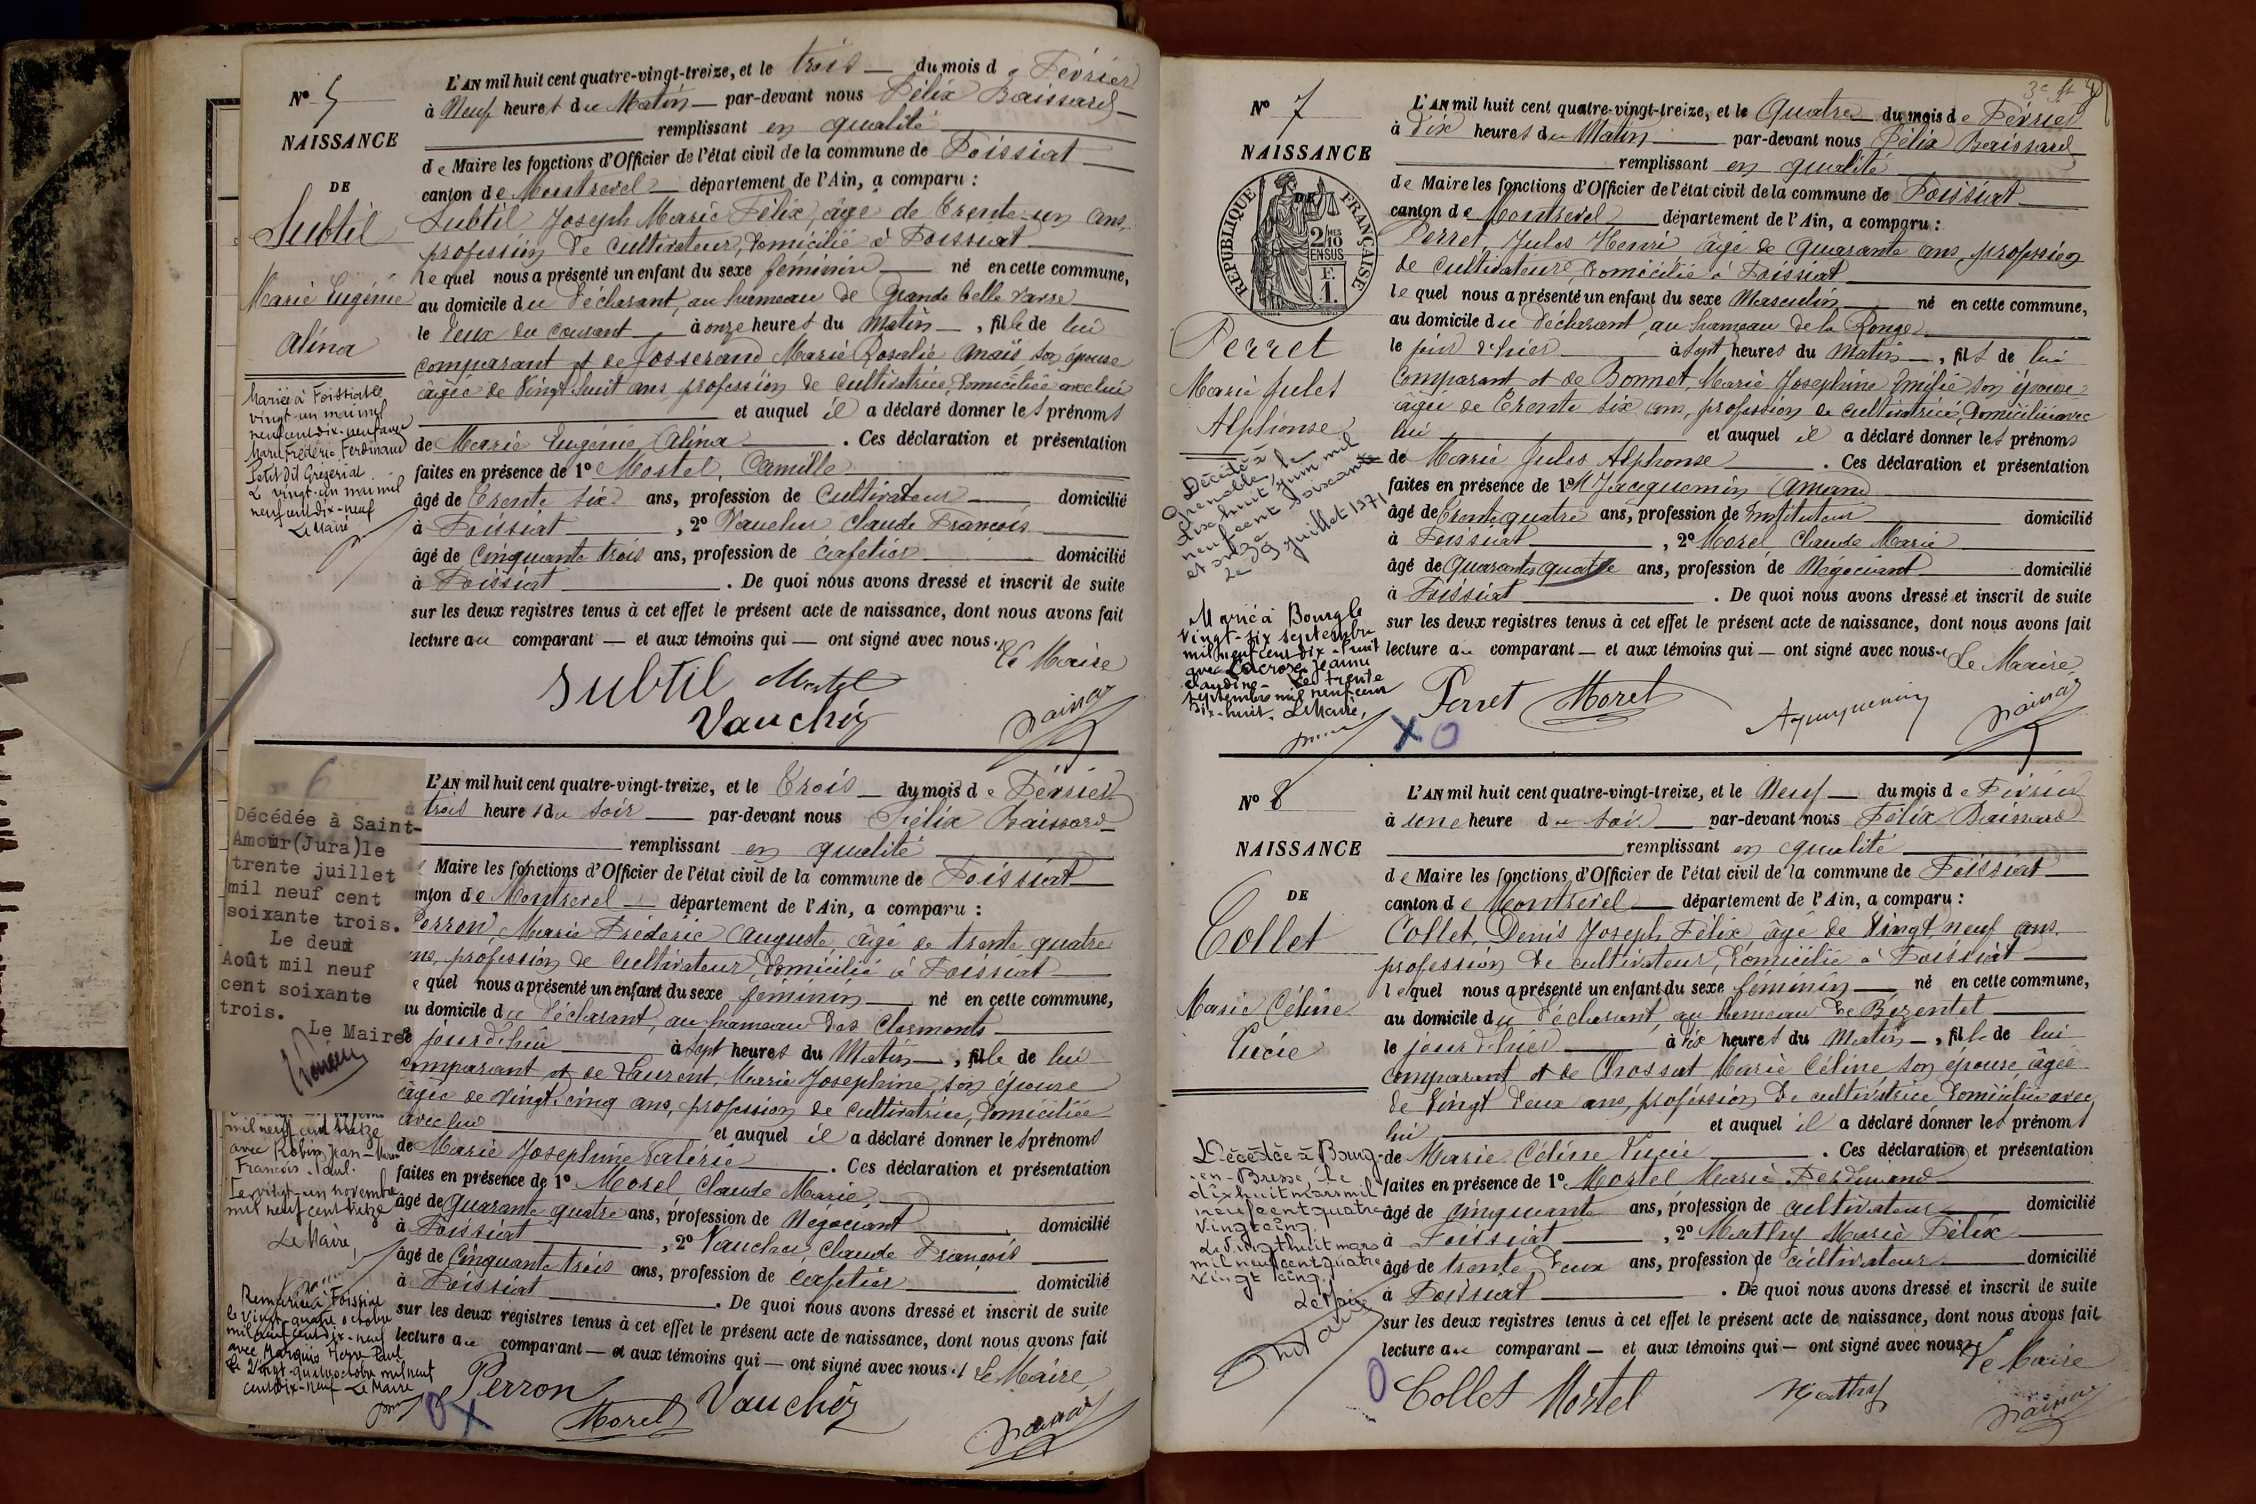 N° 5
NAISSANCE
DE
Subtil
Marie Eugénie
Alina
Mariée à Foissiat le
vingt-un mai mil
neuf cent dix-neuf avec
Ferdinand
Petit dit Grézériat
Le vingt-un mai mil
neuf cent dix-neuf
Le Maire
L'AN mil huit cent quatre-vingt-treize, et le trois du mois de Février
à Neuf heures du Matin par-devant nous Félix Baissard
remplissant en qualité
de Maire les fonctions d'Officier de l'état civil de la commune de Foissiat
canton de Montrevel département de l'Ain, a comparu :
Subtil Joseph Marie Félix, âgé de trente-un ans,
profession de cultivateur, domicilié à Foissiat
lequel nous a présenté un enfant du sexe féminin né en cette commune,
au domicile du déclarant, au hameau de Grande
le deux du courant à onze heures du Matin, fille de lui
comparant et de Josserand Marie Rosalie Anaïs son épouse
âgée de vingt huit ans profession de cultivatrice, domiciliée avec lui
et auquel il a déclaré donner les prénoms
de Marie Eugénie Alina . Ces déclaration et présentation
faites en présence de 1° Mostel, Camille
âgé de trente six ans, profession de Cultivateur domicilié
à Foissiat , 2° Vaucher Claude François
âgé de Cinquante trois ans, profession de cafetier domicilié
à Foissiat . De quoi nous avons dressé et inscrit de suite
sur les deux registres tenus à cet effet le présent acte de naissance, dont nous avons fait
lecture au comparant et aux témoins qui ont signé avec nous.
Le Maire
Subtil Mostel
Vaucher
6
Décédée à Saint-
Amour(Jura)le
trente juillet
mil neuf cent
soixante trois.
Le deux
Août mil neuf
cent soixante
trois.
Le Maire
mil neuf cent treize
avec Robin Jean-Marie
François Paul.
Le vingt-un novembre
mil neuf cent treize
Le Maire,
Remariée à Foissiat
le vingt-quatre octobre
mil neuf cent dix-neuf
avec Marquis Pierre Paul
Le vingt-quatre octobre mil neuf
cent dix-neuf Le Maire
L'AN mil huit cent quatre-vingt-treize, et le trois du mois de Février
à trois heures du soir par-devant nous Félix Baissard
remplissant en qualité
de Maire les fonctions d'Officier de l'état civil de la commune de Foissiat
anton de Montrevel département de l'Ain, a comparu :
Perron, Marie Frédéric Auguste, âgé de trente quatre
ns, profession de cultivateur, domicilié à Foissiat
e quel nous a présenté un enfant du sexe féminin né en cette commune,
au domicile du déclarant, au hameau des Clermonts
jour d'hui à sept heures du Matin, fille de lui
comparant et de Laurent, Marie Josephine son épouse
âgée de vingt cinq ans, profession de cultivatrice, domiciliée
avec lui et auquel il a déclaré donner les prénoms
de Marie Josephine Valérie . Ces déclaration et présentation
faites en présence de 1° Morel Claude Marie
âgé de quarante quatre ans, profession de Négociant domicilié
à Foissiat , 2° Vaucher Claude François
âgé de Cinquante trois ans, profession de cafetier domicilié
à Foissiat . De quoi nous avons dressé et inscrit de suite
sur les deux registres tenus à cet effet le présent acte de naissance, dont nous avons fait
lecture au comparant et aux témoins qui ont signé avec nous. Le Maire
Perron Morel Vaucher
N° 7
NAISSANCE
DE
RÉPUBLIQUE FRANÇAISE
2/10
EN SUS
F.
1.
Perret
Marie Jules
Alphonse
Décédé à
Grenoble, le
dix huit juin mil
neuf cent soixante
et onze
Le 9 juillet 1971
Marié à Bourg le
vingt-six septembre
mil neuf cent dix-huit
avec Lacroix Jeanne
Claudine - Le trente
septembre mil neuf cent
dix-huit. Le Maire,
L'AN mil huit cent quatre-vingt-treize, et le Quatre du mois de Février
à dix heures du Matin par-devant nous Félix Baissard
remplissant en qualité
de Maire les fonctions d'Officier de l'état civil de la commune de Foissiat
canton de Montrevel département de l'Ain, a comparu :
Perret, Jules Henri, âgé de quarante ans, profession
de cultivateur, domicilié à Foissiat
lequel nous a présenté un enfant du sexe Masculin né en cette commune,
au domicile du déclarant, au hameau de la Ronge
le jour d'hier à sept heures du Matin, fils de lui
comparant et de Bonnet, Marie Josephine Emilie son épouse
âgée de trente six ans, profession de cultivatrice, domiciliée avec
lui et auquel il a déclaré donner les prénoms
de Marie Jules Alphonse . Ces déclaration et présentation
faites en présence de 1° Jacquemin Amand
âgé de trente quatre ans, profession de Instituteur domicilié
à Foissiat , 2° Morel Claude Marie
âgé de quarante quatre ans, profession de Négociant domicilié
à Foissiat . De quoi nous avons dressé et inscrit de suite
sur les deux registres tenus à cet effet le présent acte de naissance, dont nous avons fait
lecture au comparant et aux témoins qui ont signé avec nous. Le Maire
Perret Morel
N° 8
NAISSANCE
DE
Collet
Marie Céline
Lucie
Décédée à Bourg-
en-Bresse, le
dix huit mars mil
neuf cent quatre
vingt cinq.
Le vingt huit mars
mil neuf cent quatre
vingt cinq.
Le Maire
L'AN mil huit cent quatre-vingt-treize, et le Neuf du mois de Février
à une heure du soir par-devant nous Félix Baissard
remplissant en qualité
de Maire les fonctions d'Officier de l'état civil de la commune de Foissiat
canton de Montrevel département de l'Ain, a comparu :
Collet, Denis Joseph Félix, âgé de vingt neuf ans,
profession de cultivateur, domicilié à Foissiat
lequel nous a présenté un enfant du sexe féminin né en cette commune,
au domicile du déclarant, au hameau de Bézentet
le jour d'hier à dix heures du Matin, fille de lui
comparant et de Brossat Marie Céline son épouse, âgée
de vingt deux ans, profession de cultivatrice domiciliée avec
lui et auquel il a déclaré donner les prénoms
de Marie Céline Lucie . Ces déclaration et présentation
faites en présence de 1° Mostel Marie Ferdinand
âgé de cinquante ans, profession de cultivateur domicilié
à Foissiat , 2° Mathy Marie Félix
âgé de trente deux ans, profession de cultivateur domicilié
à Foissiat . De quoi nous avons dressé et inscrit de suite
sur les deux registres tenus à cet effet le présent acte de naissance, dont nous avons fait
lecture au comparant et aux témoins qui ont signé avec nous. Le Maire
Collet Mostel Mathy